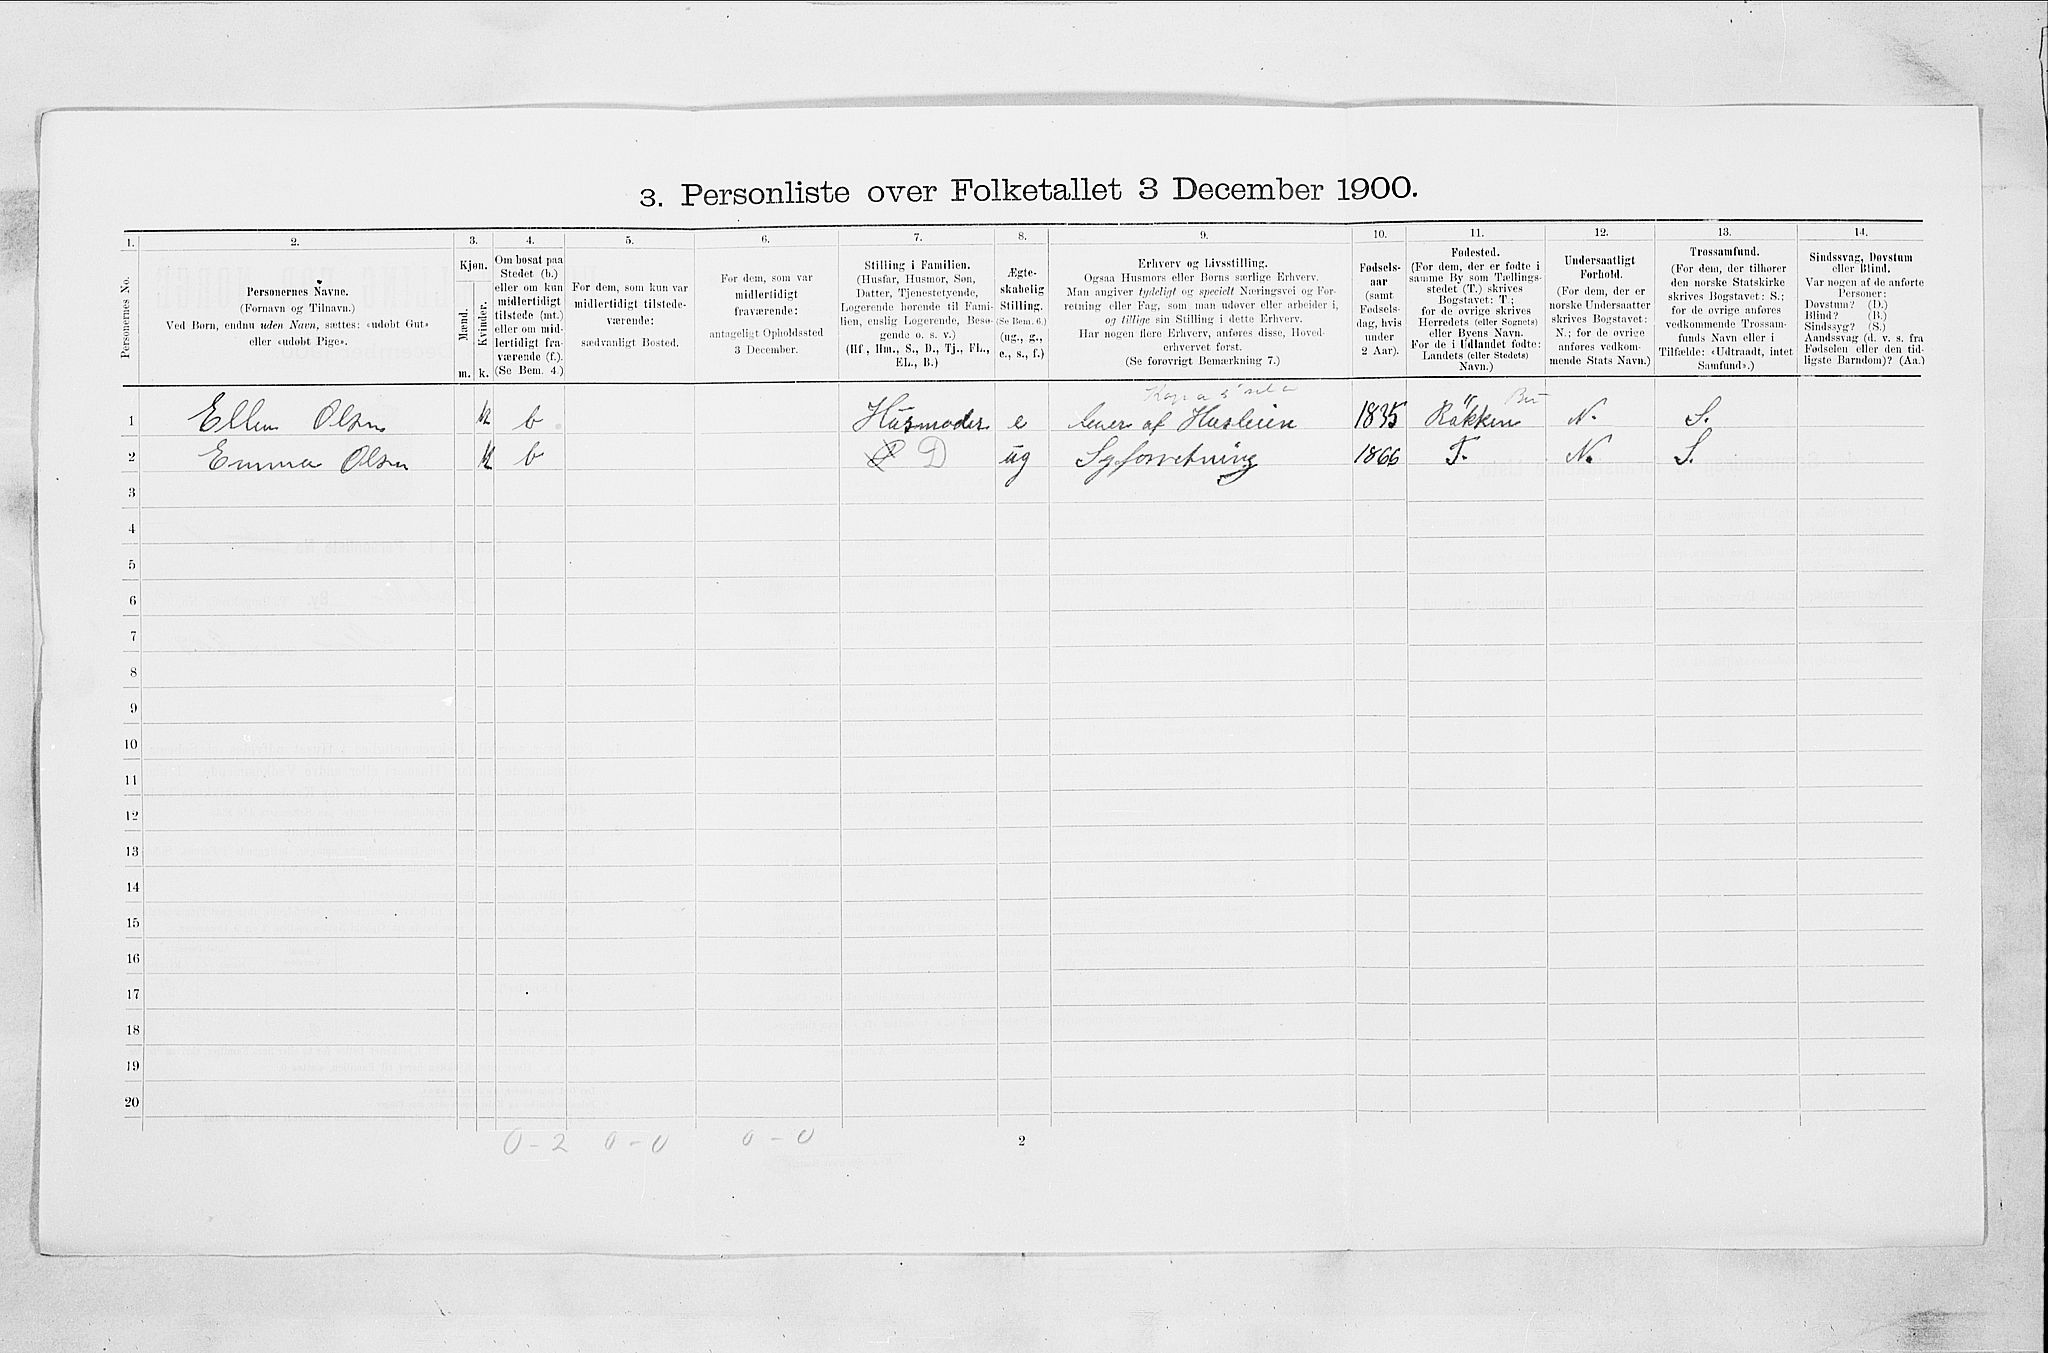 3. Personliste over Folketallet 3 December 1900.
1. 2. 3. 4. 5. 6. 7. 8. 9. 10. 11. 12. 13. 14.
Personernes No.
Personernes Navne.
(Fornavn og Tilnavn.)
Ved Børn, endnu uden Navn, sættes: «udøbt Gut»
eller «udøbt Pige».
Kjøn.
Mænd.
Kvinder.
m. k.
Om bosat paa
Stedet (b.)
eller om kun
midlertidigt
tilstede (mt.)
eller om mid-
lertidigt fra-
værende (f.).
(Se Bem. 4.)
For dem, som kun var
midlertidigt tilstede-
værende:
sædvanligt Bosted.
For dem, som var
midlertidigt
fraværende:
antageligt Opholdssted
3 December.
Stilling i Familien.
(Husfar, Husmor, Søn,
Datter, Tjenestetyende,
Logerende hørende til Fami-
lien, enslig Logerende, Besø-
gende o. s. v.)
(Hf., Hm., S., D., Tj., FL.,
EL., B.)
Ægte-
skabelig
Stilling.
(Se Bem. 6.)
(ug., g.,
e., s., f.)
Erhverv og Livsstilling.
Ogsaa Husmors eller Børns særlige Erhverv.
Man angiver tydeligt og specielt Næringsvei og For-
retning eller Fag, som man udøver eller arbeider i,
og tillige sin Stilling i dette Erhverv.
Har nogen flere Erhverv, anføres disse, Hoved-
erhvervet først.
(Se forøvrigt Bemærkning 7.)
Fødsels-
aar
(samt
Fødsels-
dag, hvis
under
2 Aar).
Fødested.
(For dem, der er fødte i
samme By som Tællings-
stedet (T.) skrives
Bogstavet: T.;
for de øvrige skrives
Herredets (eller Sognets)
eller Byens Navn.
For de i Udlandet fødte:
Landets (eller Stedets)
Navn.)
Undersaatligt
Forhold.
(For dem, der er
norske Undersaatter
skrives Bogstavet:
N.; for de øvrige
anføres vedkom-
mende Stats Navn.)
Trossamfund.
(For dem, der tilhører
den norske Statskirke
skrives Bogstavet: S.;
for de øvrige anføres
vedkommende Trossam-
funds Navn eller i
Tilfælde: «Udtraadt, intet
Samfund».)
Sindssvag, Døvstum
eller Blind.
Var nogen af de anførte
Personer:
Døvstum? (D.)
Blind? (B.)
Sindssyg? (S.)
Aandssvag (d. v. s. fra
Fødselen eller den tid-
ligste Barndom)? (Aa.)
1 Ellen Olsen k b Husmoder e lever af Husleien 1835 Røkken N. S.
2 Emma Olsen k b D ug Syforretning 1866 T. N. S.
3
4
5
6
7
8
9
10
11
12
13
14
15
16
17
18
19
20
0-2 0-0 0-0
2